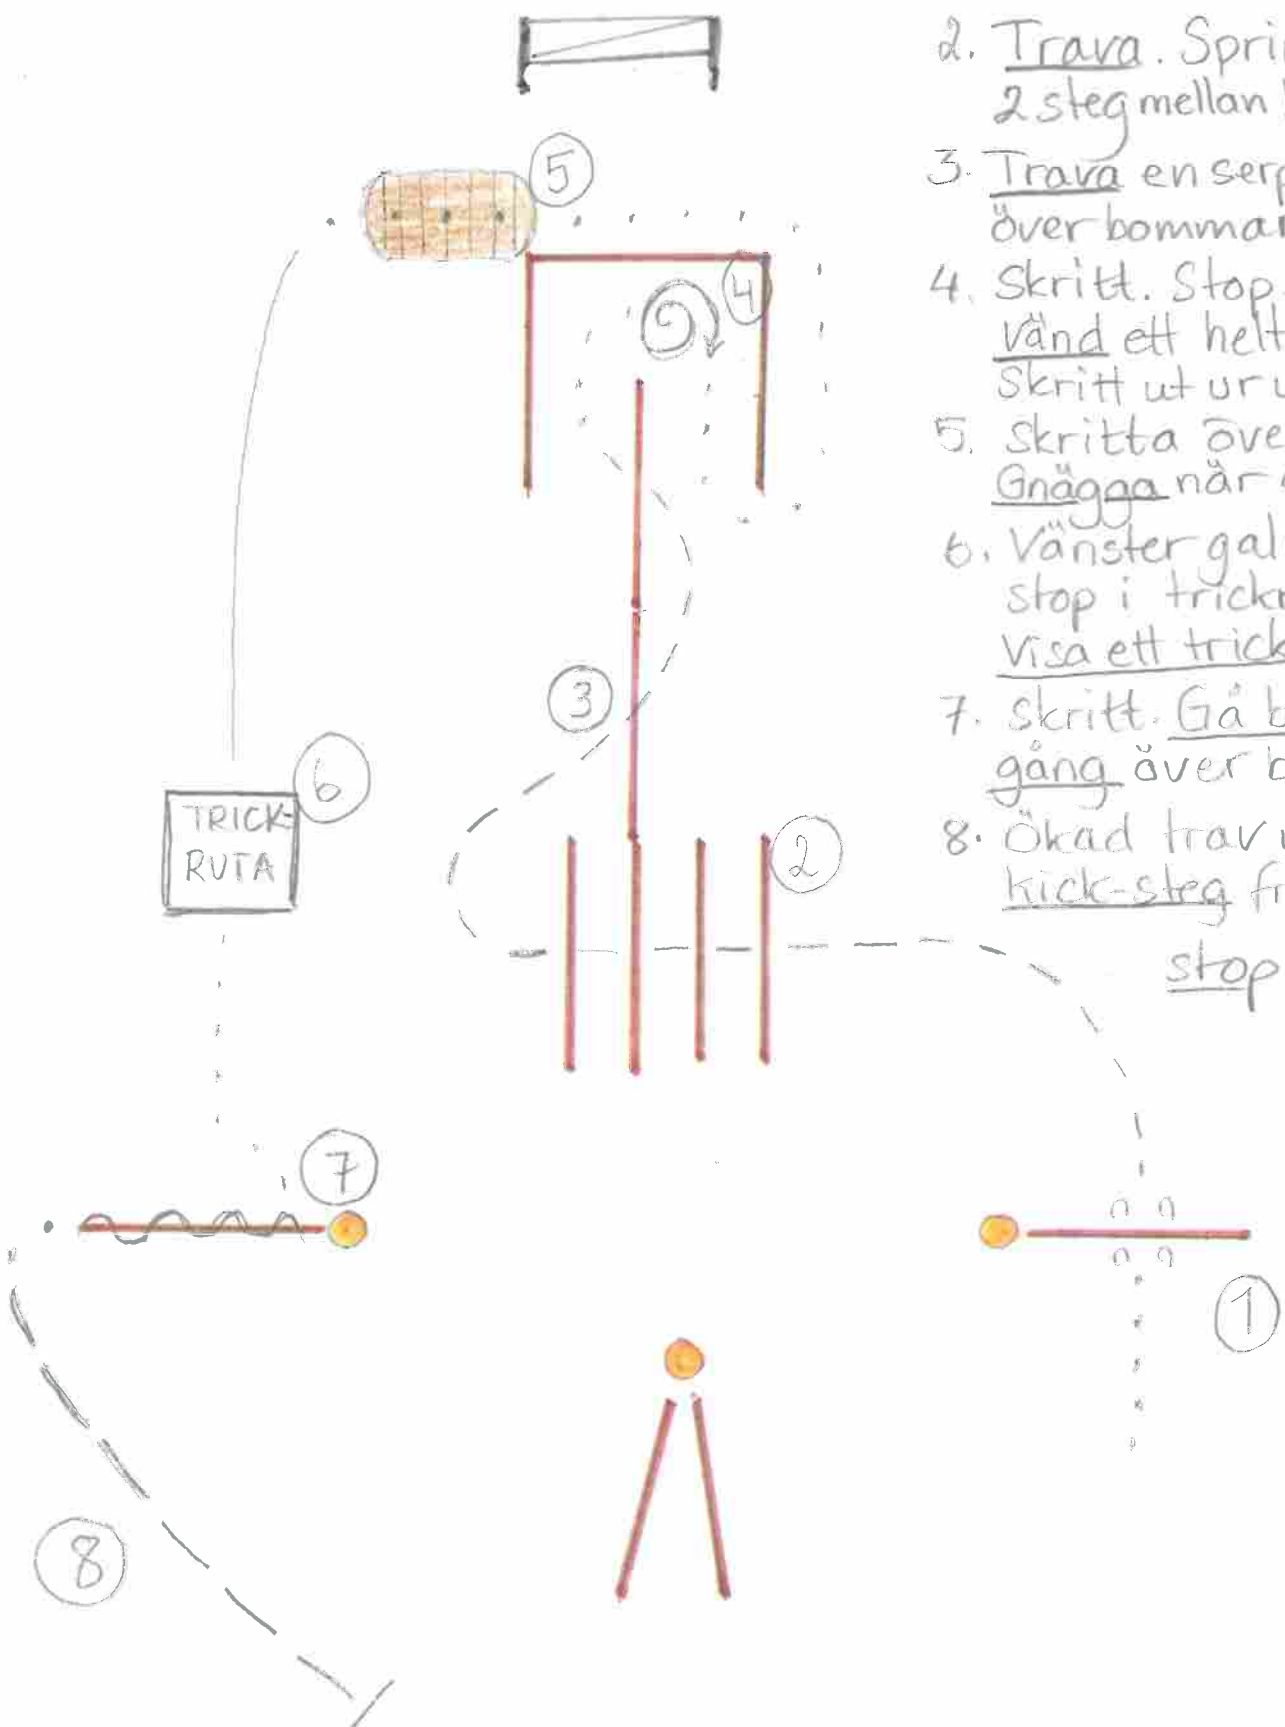 2. Trava.
2 steg mellan
3. Trava en
över
4. Skritt. Stop.
Vänd ett helt
Skritt ut ur
5. Skritta
Gnägga när
6. Vänster
stop i
Visa ett trick
7. Skritt. Gå
gång över
8. Ökad trav
kick-steg
stop
5
4
3
6
TRICK-
RUTA
2
7
1
8